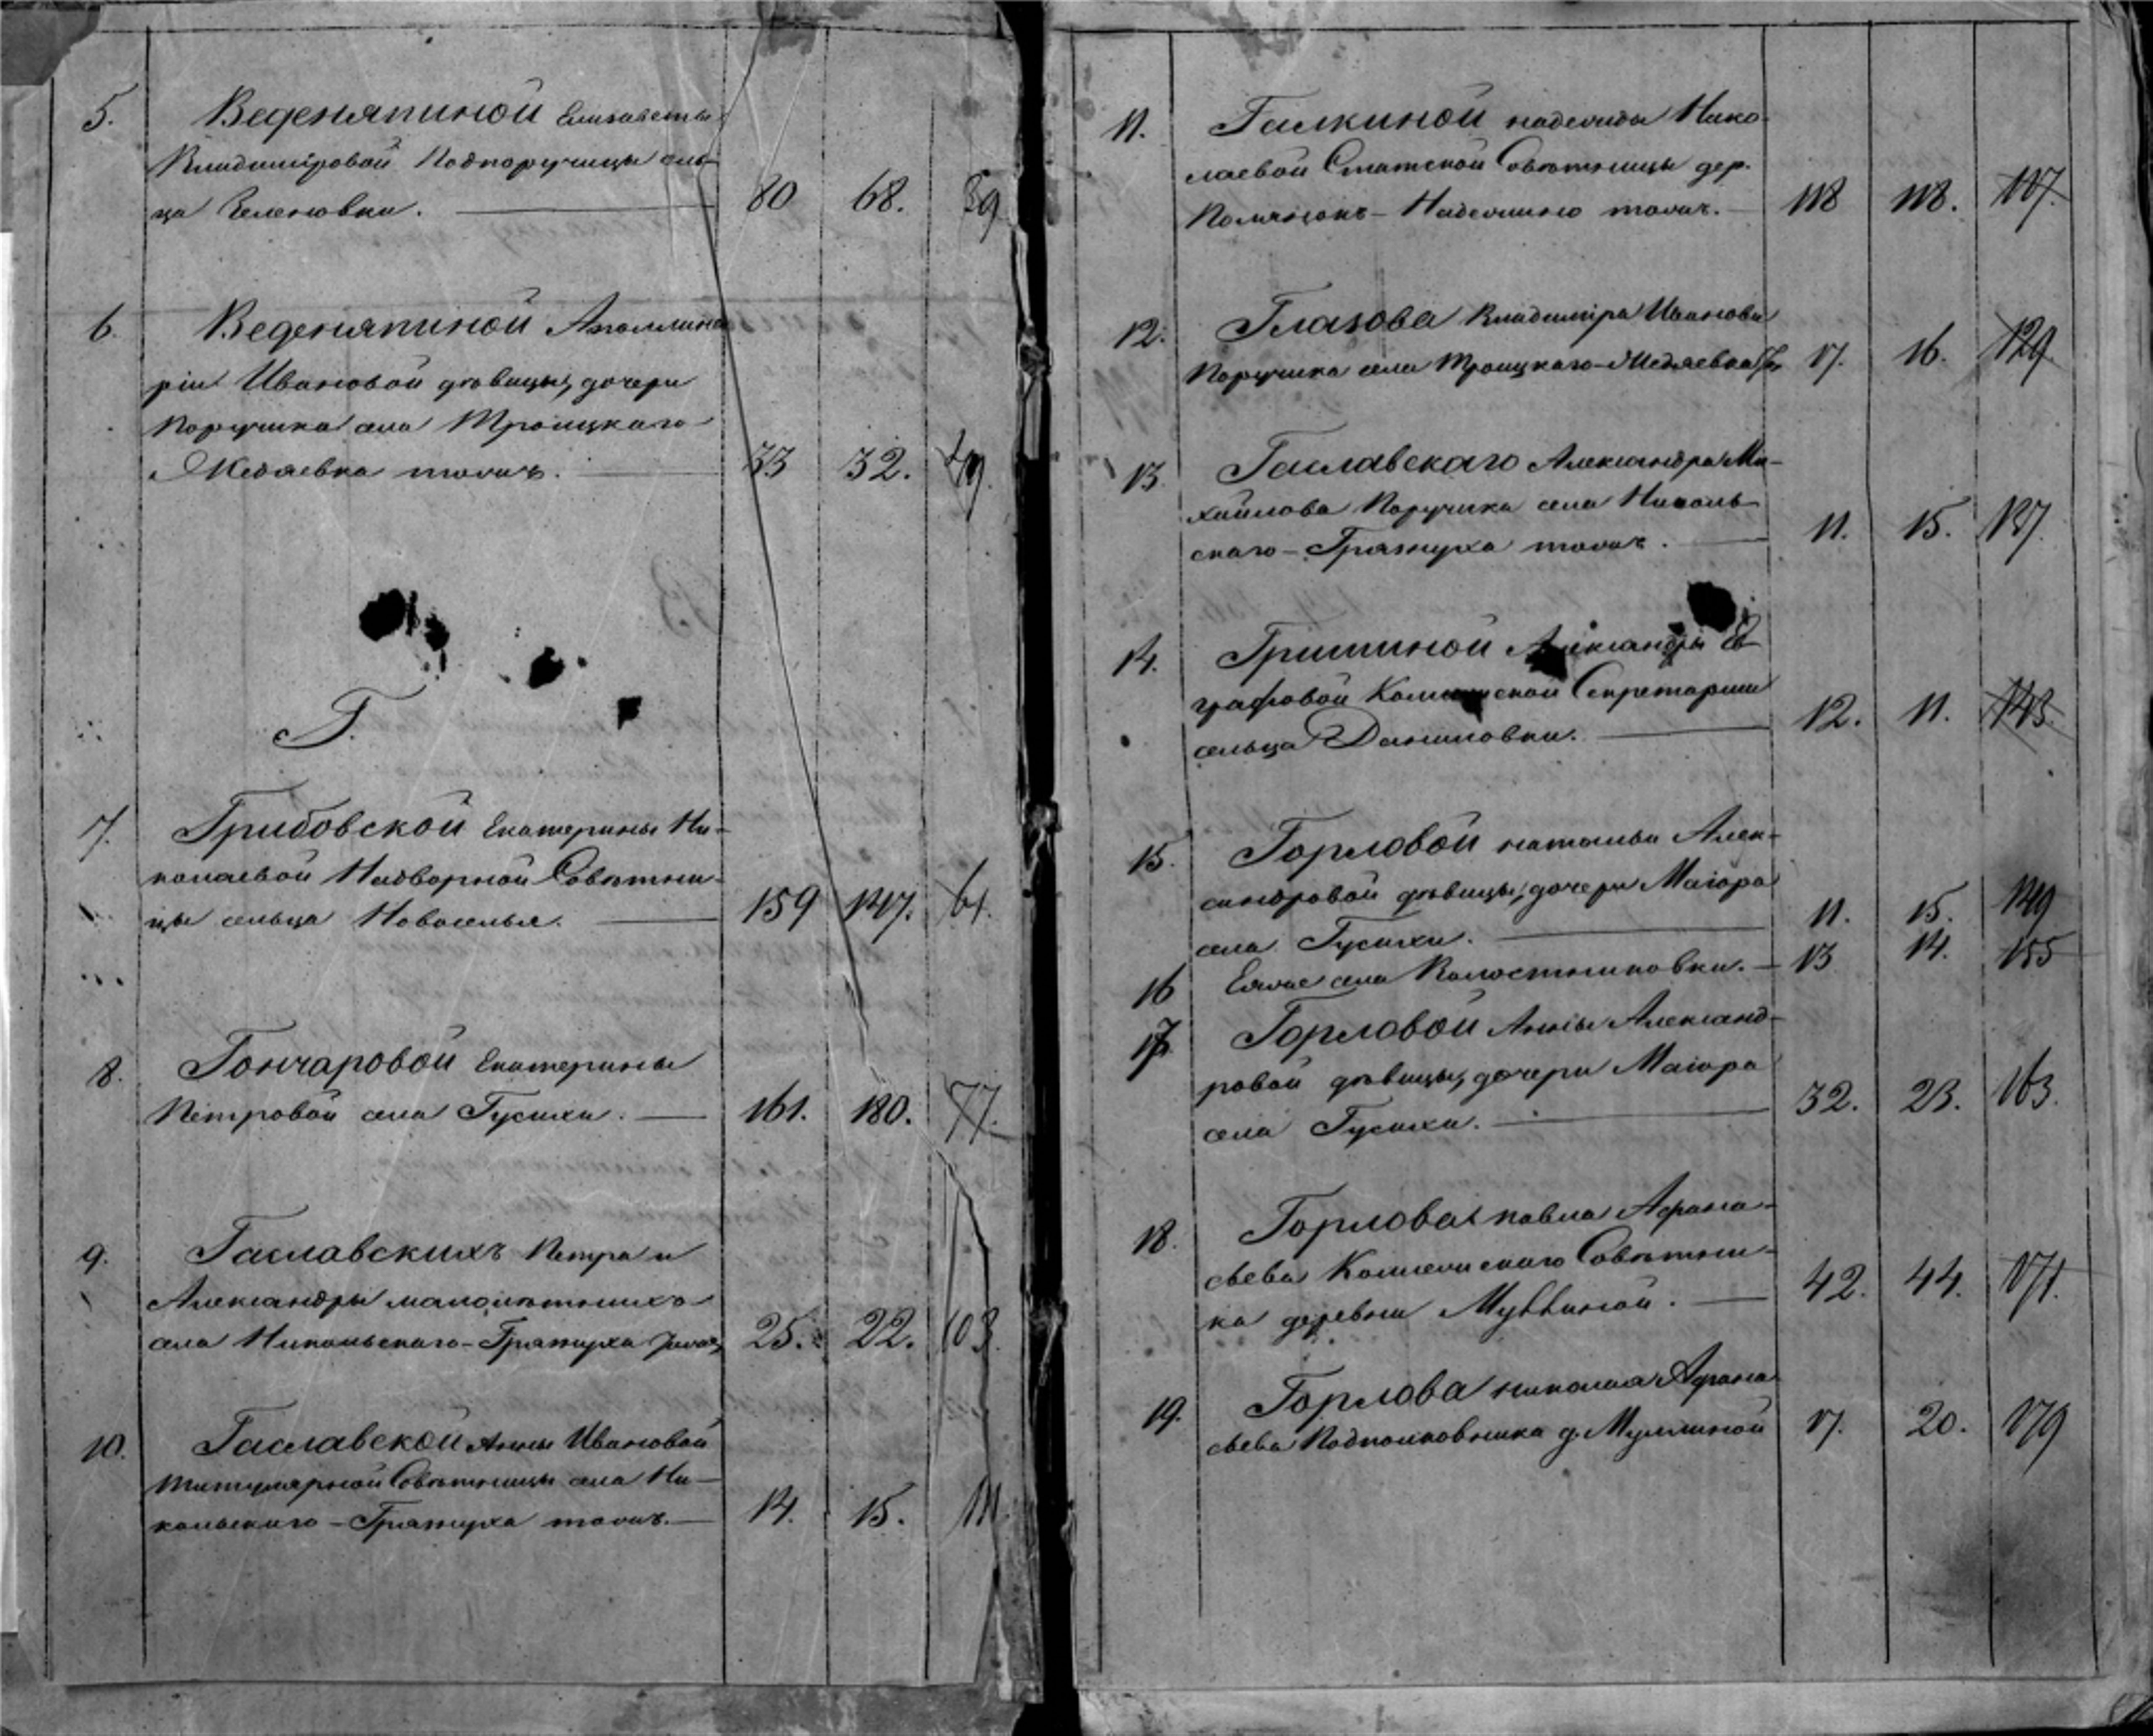 5. Веденяпиной Елизаветы
Владиміровой Подпоручицы сель-
ца Еленовки. 80 68. 39
6. Веденяпиной Аполлина
ріи Ивановой дѣвицы, дочери
Поручика села Троицкаго
Медаевка тожъ. 33 32. 49.
Г.
7. Грибовской Екатерины Ни-
колаевой Надворной Совѣтни-
цы сельца Новоселья. 159 147. 61.
8. Гончаровой Екатерины
Петровой села Гусихи. 161. 180. 77.
9. Гаславскихъ Петра и
Александры малолѣтнихъ
села Никольскаго-Грязнуха тожъ 25. 22. 103.
10. Гаславской Анны Ивановой
Титулярной Совѣтницы села Ни-
кольскаго-Грязнуха тожъ. 14. 15. 111.
11. Галкиной надежды Нико-
лаевой Статской Совѣтницы дер.
Полянокъ-Надеждино тожъ. 118 118. 117.
12. Глазова Владиміра Иванова
Поручика села Троицкаго-Медаевка 17. 16. 129
13. Гаславскаго Александра Ми-
хайлова Поручика села Николь-
скаго-Грязнуха тожъ. 11. 15. 137.
14. Гришиной Александры Ев
графовой Коллежской Секретарши
сельца Даниловки. 12. 11. 143.
15. Горловой натальи Алек-
сандровой дѣвицы, дочери Маіора
села Гусихи. 11. 15. 149
16 Еяже села Колостниковки. 13 14. 155
17 Горловой Анны Александ-
ровой дѣвицы, дочери Маіора
села Гусихи. 32. 23. 163.
18. Горлова павла Афана-
сьева Коллежскаго Совѣтни-
ка деревни Муллиной. 42. 44. 171.
19. Горлова николая Афана
сьева Подполковника д. Муллиной 17. 20. 179